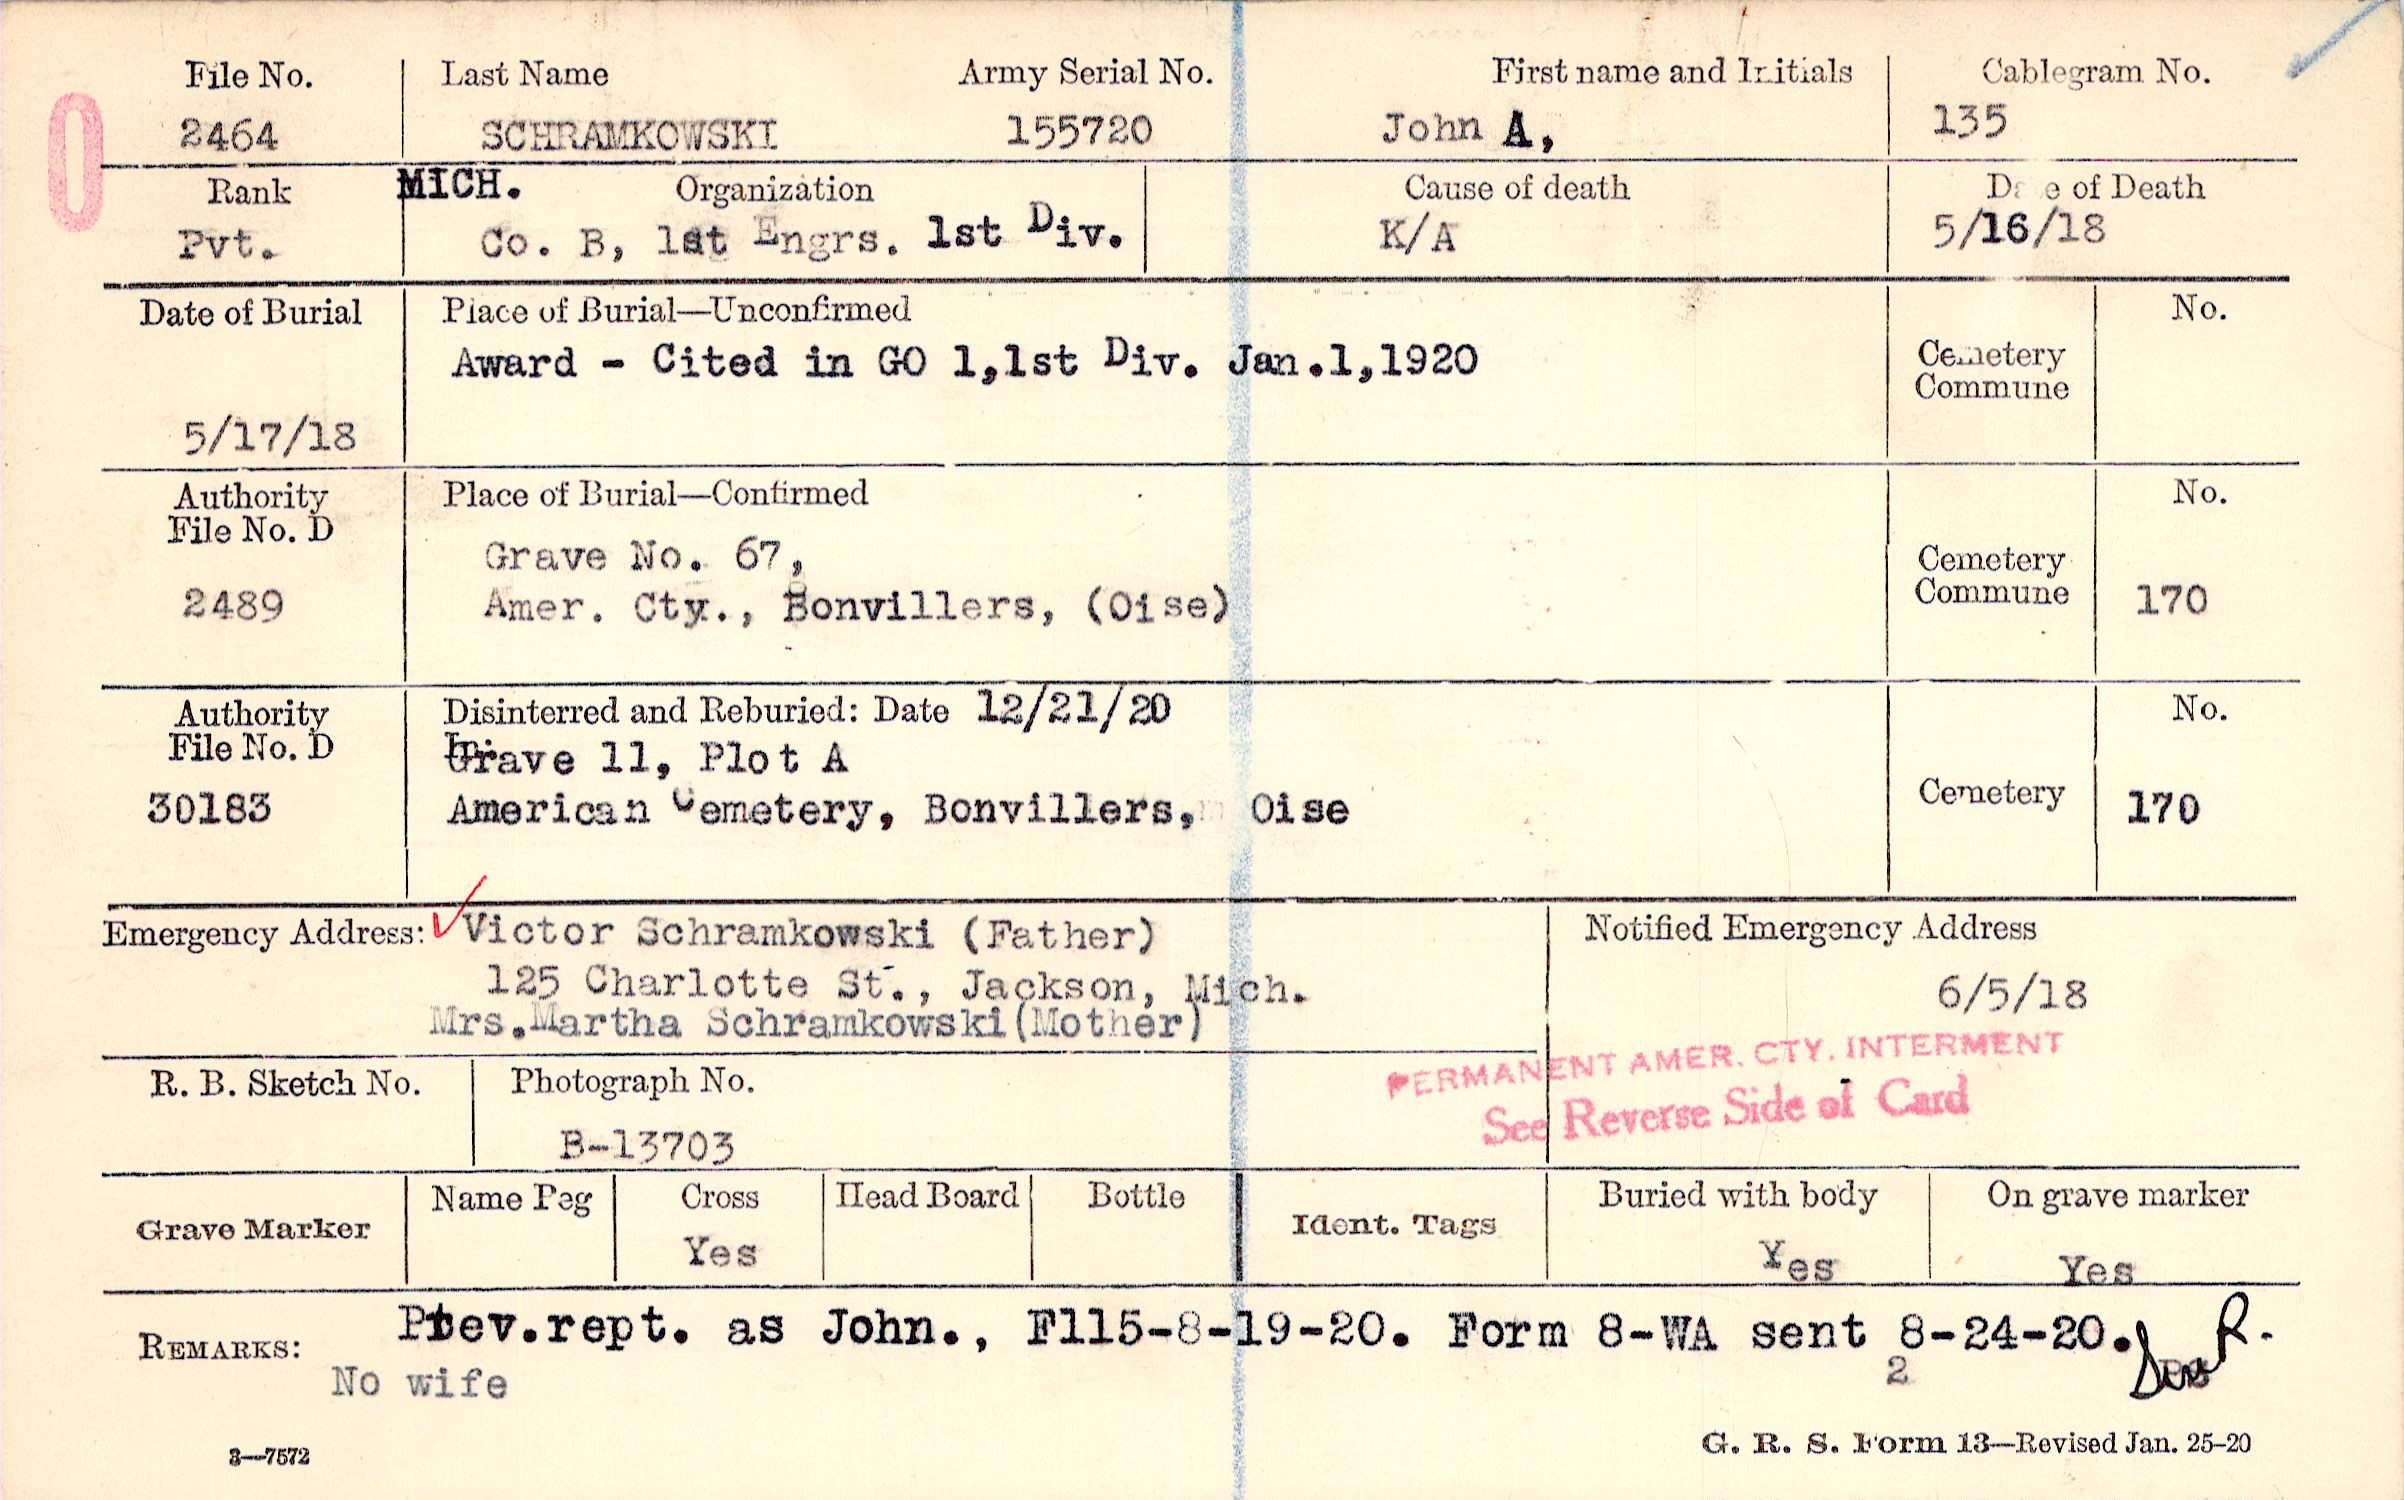 File No. Last Name Army Serial No. First name and Initials Cablegram No.
0
2464 SCHRAMKOWSKI 155720 John A, 135
Rank MICH. Organization Cause of death Date of Death
Pvt. Co. B, 1st Engrs. 1st Div. K/A 5/16/18
Date of Burial Place of Burial—Unconfirmed No.
Award - Cited in GO 1,1st Div. Jan.1,1920 Cemetery
Commune
5/17/18
Authority Place of Burial—Confirmed No.
File No. D
Grave No. 67, Cemetery
2489 Amer. Cty., Bonvillers, (Oise) Commune 170
Authority Disinterred and Reburied: Date 12/21/20 No.
File No. D In:
Grave 11, Plot A
30183 American Cemetery, Bonvillers, Oise Cemetery 170
Emergency Address: Victor Schramkowski (Father) Notified Emergency Address
125 Charlotte St., Jackson, Mich. 6/5/18
Mrs.Martha Schramkowski(Mother)
PERMANENT AMER. CTY. INTERMENT
See Reverse Side of Card
R. B. Sketch No. Photograph No.
B-13703
Grave Marker Name Peg Cross Head Board Bottle Ident. Tags Buried with body On grave marker
Yes Yes Yes
REMARKS: Prev.rept. as John., F115-8-19-20. Form 8-WA sent 8-24-20. R.
No wife 2
3—7572 G. R. S. Form 13—Revised Jan. 25-20